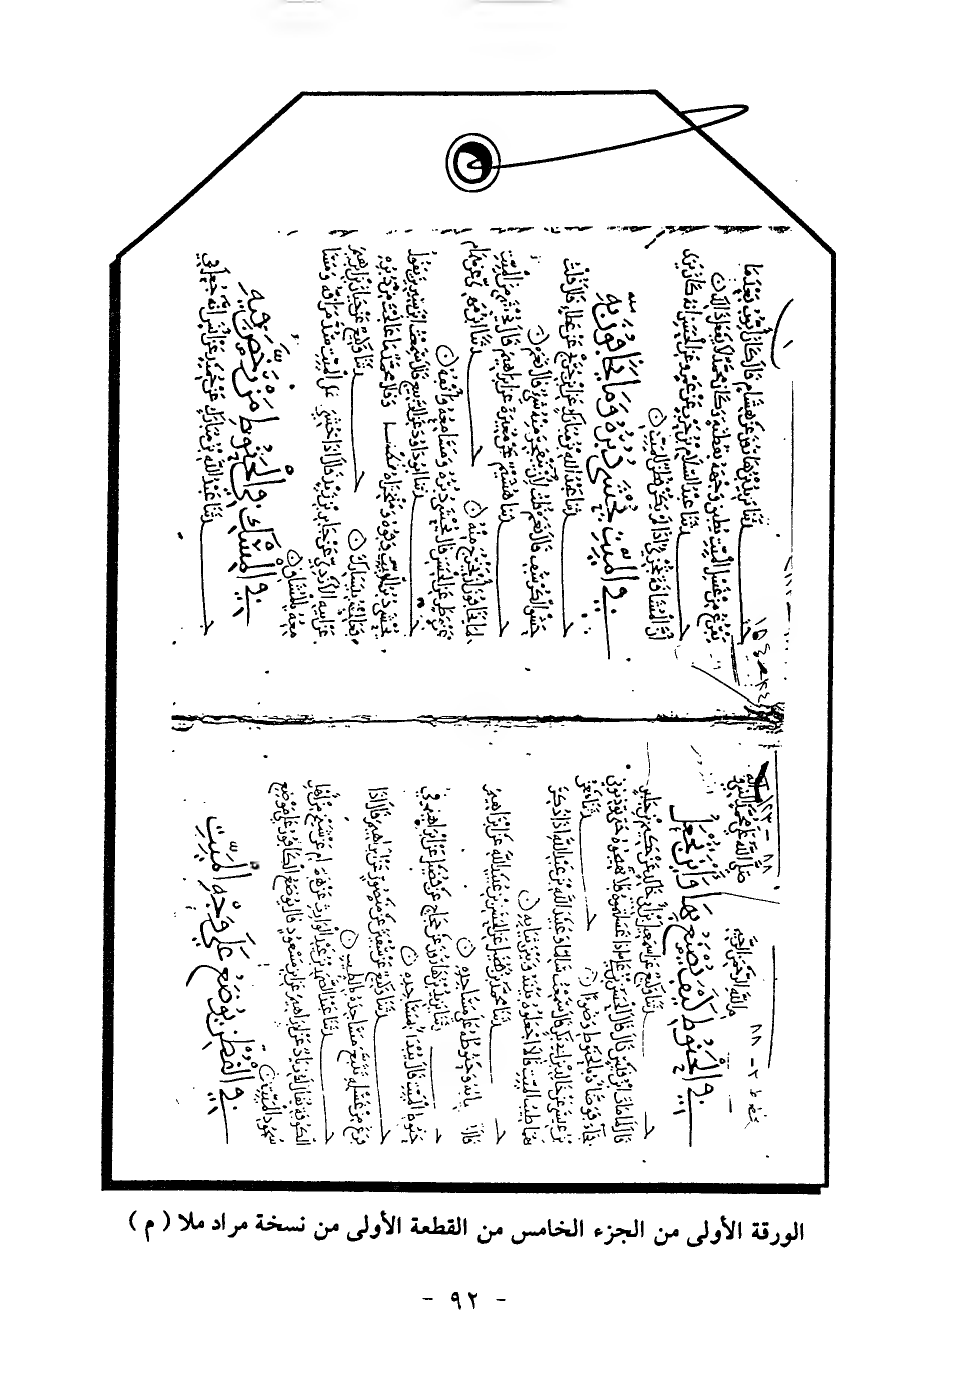 بسم الله الرحمن الرحيم صلى الله على محمد النبي وآله
في الحنوط كيف يصنع به وأين يجعل
ثنا وكيع عن اسمعيل بن ابي خالد عن حكيم بن جابر
قال لما مات ابن قيس قال قال الحسن بن علي اذا غسلتموه فلا تهيجوه حتى توذنوني
فجاء فوضأه بالحنوط وضوءا ثنا معن
بن عيسى عن خالد بن ابي بكر قال سمعت سالما وعبيد الله بن عبد الله اذا ذكر
لهما طيب الميت قالا اجعلوه بينه وبين ثيابه
ثنا محمد بن فضيل عن الحسن بن عبيد الله عن ابراهيم
قال وحنوطه على مساجده
ثنا يزيد بن هارون عن حجاج عن فضيل عن ابراهيم في
حنوط الميت قال يبدا بمساجده
ثنا وكيع عن سفين عن منصور عن ابراهيم قال اذا
فرغ من غسله تتبع مساجده بالطيب
ثنا عبد الصمد بن عبد الوارث عن همام عن شيخ من اهل
الكوفة يقال له زياد عن ابراهيم عن ابن مسعود قال يوضع الكافور على موضع
سجود الميت
في القطن يوضع على وجه الميت
ثنا يزيد بن هارون عن هشام قال كان ايوب بعدما
يفرغ من غسل الميت يطبق وجهه بقطنة وكان محمد لا يفعل ذلك
ثنا عبد السلام بن حرب عن عمرو عن الحسن انه كان يرى
ان المشاقة تجزئ اذا لم يكن قطن للميت
في الميت يحشى دبره وما يخافون به
ثنا عبد الله بن مبارك عن ابن جريج عن عطاء قال قلت
حشو الكرسف قال نعم قلت لئن يتفجر منه شيء قال نعم
ثنا هشيم عن مغيرة عن ابراهيم قال يحشى من الميت
لما يخافون ان يخرج منه
ثنا عن همام
عن مطر عن الحسن قال يحشى دبره ومسامعه وانفه
ثنا ابو داود عن الربيع قال سمعت ابن سيرين يقول
يحشى دبر الميت وفوه ومنخراه قطنا وقال محمد ما عالجت من دبره
فعالجه بيسارك
ثنا وكيع عن بن ابراهيم
عن الازدي عن جابر بن زيد قال اذا خشي على الميت
معه بالمشاق
في المسك في الحنوط من رخص فيه
ثنا عبد الله بن مبارك عن حميد عن انس انه جعل في
الورقة الأولى من الجزء الخامس من القطعة الأولى من نسخة مراد ملا ( م )
- ٩٢ -